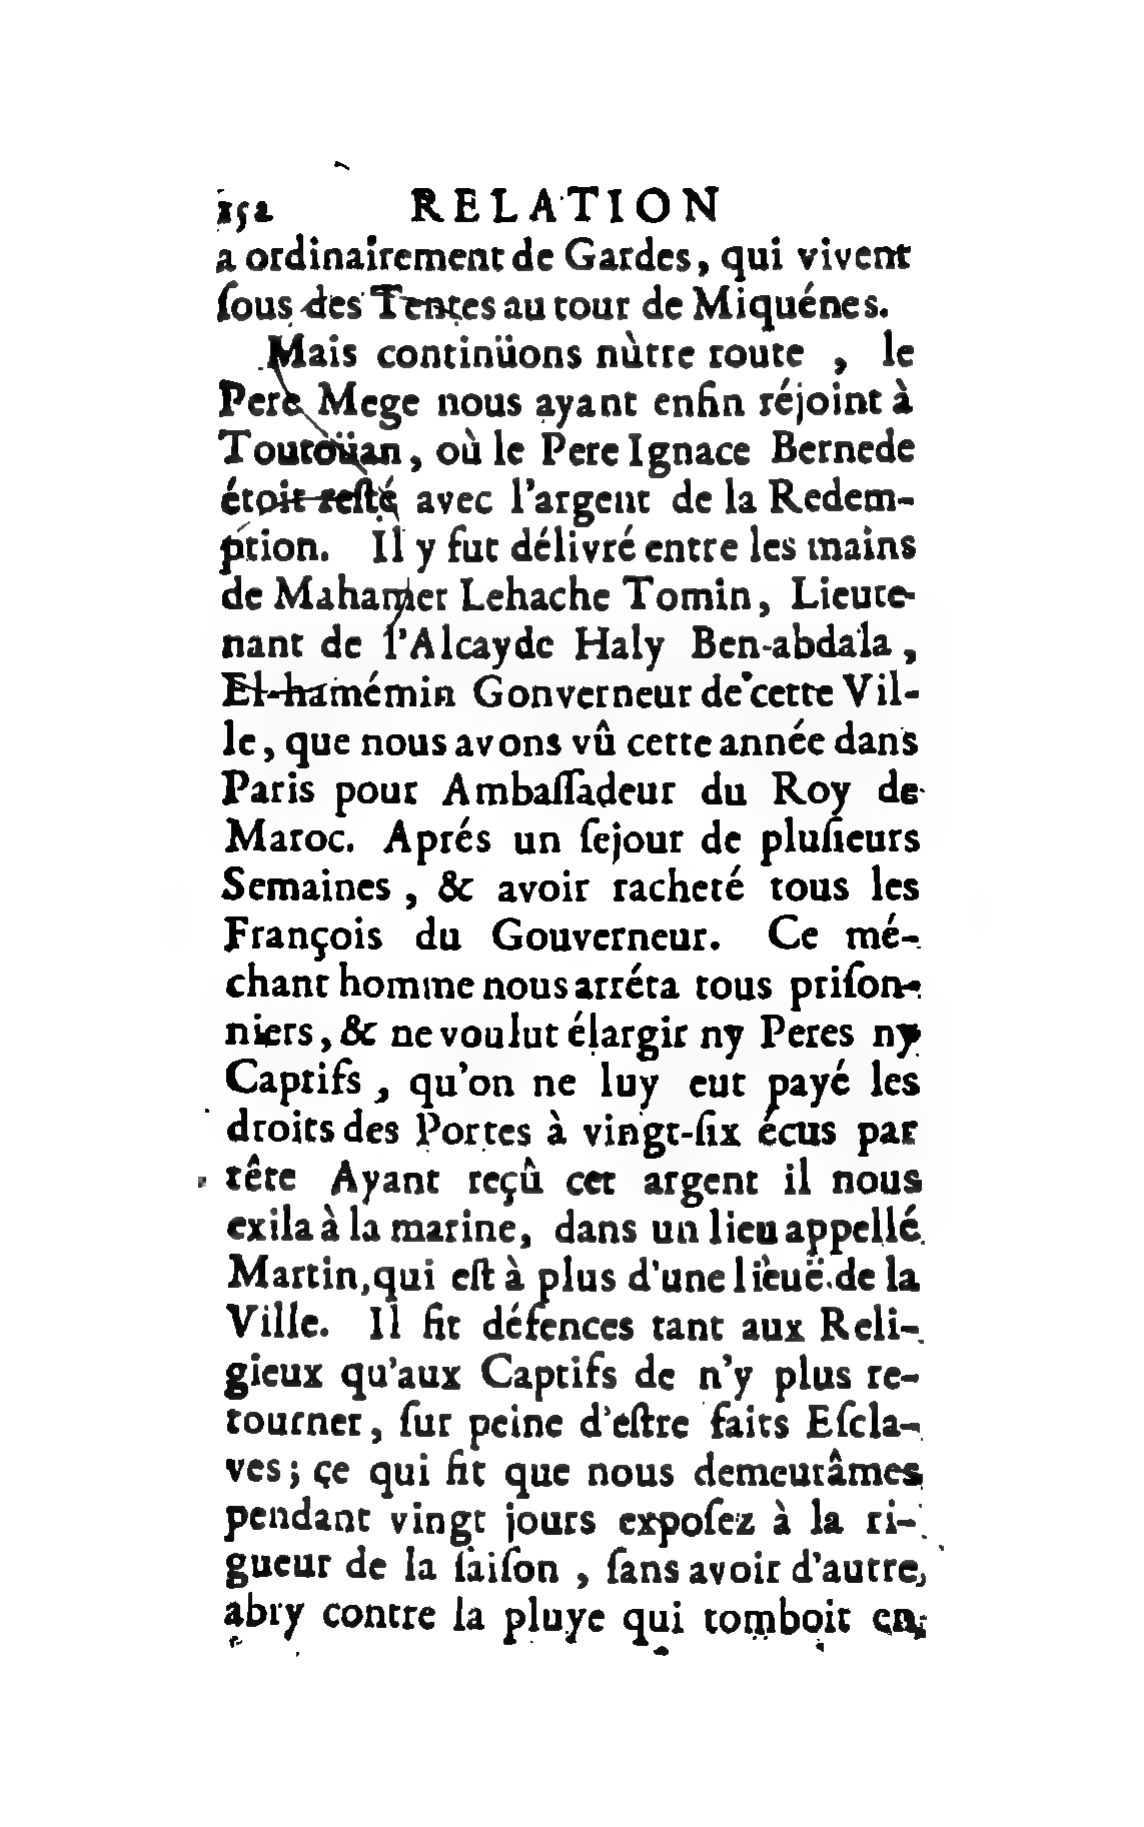 152 RELATION
a ordinairement de Gardes, qui vivent
ſous des Tentes au tour de Miquénes.
Mais continüons nùtre route , le
Pere Mege nous ayant enfin réjoint à
Toutoüan, où le Pere Ignace Bernede
étoit reſté avec l'argent de la Redem-
ption. Il y fut délivré entre les mains
de Mahamer Lehache Tomin, Lieute-
nant de l'Alcayde Haly Ben-abdala ,
El-hamémin Gonverneur de cette Vil-
le, que nous avons vû cette année dans
Paris pour Ambaſſadeur du Roy de
Maroc. Aprés un ſejour de pluſieurs
Semaines , & avoir racheté tous les
François du Gouverneur. Ce mé-
chant homme nous arréta tous priſon-
niers, & ne voulut élargir ny Peres ny
Captifs , qu'on ne luy eut payé les
droits des Portes à vingt-ſix écus par
tête Ayant reçû cet argent il nous
exila à la marine, dans un lieu appellé
Martin, qui eſt à plus d'une lieuë de la
Ville. Il fit défences tant aux Reli-
gieux qu'aux Captifs de n'y plus re-
tourner, ſur peine d'eſtre faits Eſcla-
ves; çe qui fit que nous demeurâmes
pendant vingt jours expoſez à la ri-
gueur de la ſaiſon , ſans avoir d'autre
abry contre la pluye qui tomboit en